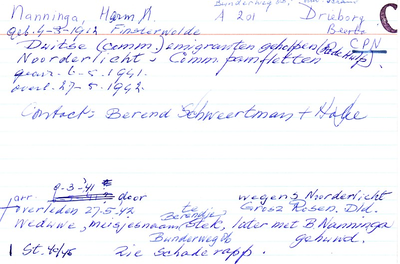 Nanninga, Harm A. Bunderweg 86, C
A 201 Drieborg
geb. 4-3-1912 Finsterwolde Beerta
Duitse (comm.) emigranten geholpen (Rode Hulp) CPN
Noorderlicht - Comm. pamfletten
gearr. 6-5-1941.
overl. 27-5-1942.
Contact: Berend Schweertman +
9-3-'41
arr. door wegens Noorderlicht
overleden 27.5.42 te Gross Rosen. Dld.
Weduwe, meisjesnaam Berendje Stek, later met B Nanninga
Bunderweg 86 gehuwd.
1 St. 40/45 Zie Schaderapp.